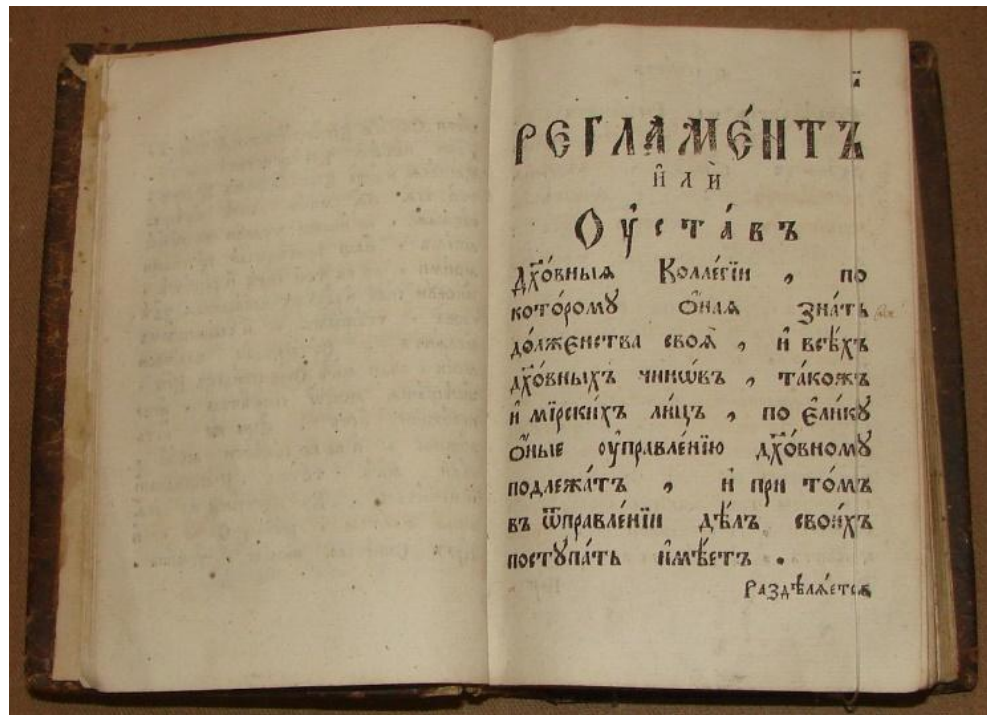 а҃
РЕГЛАМЕ́НТЪ
и҆лѝ
Оу҆ста́въ
дх҃о́вныѧ Колле́гїи , по
кото́ромꙋ ѻ҆́наѧ зна́ть
до́лженства своѧ̀ , и҆ всѣ́хъ
дх҃о́вныхъ чинѡ́въ , та́кожъ
и҆ мїрски́хъ ли́цъ , по є҆ли́кꙋ
ѻ҆́ные оу҆правле́нїю дх҃о́вномꙋ
подлежа́тъ , и҆ при то́мъ
въ ѿправле́нїи дѣ́лъ свои́хъ
постꙋпа́ть и҆мѣ́етъ .
Раздѣлѧ́етсѧ